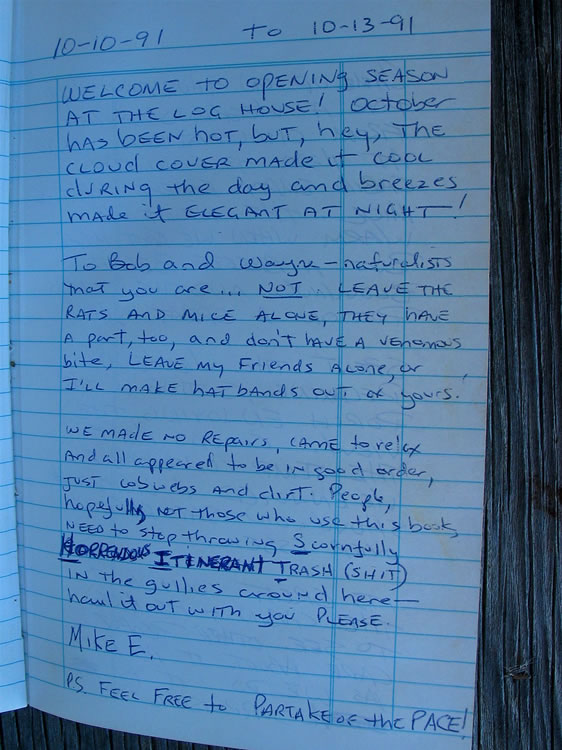 10-10-91 TO 10-13-91
WELCOME TO OPENING SEASON
AT THE LOG HOUSE! October
HAS BEEN HOT, BUT, hey, THE
CLOUD COVER MADE it COOL
dURING the day and breezes
made it ELEGANT AT NIGHT!
To Bob and Wayne - naturalists
that you are... NOT. LEAVE THE
RATS AND MICE ALONE, THEY HAVE
A part, too, and don't HAVE A venomous
bite, LEAVE my Friends Alone, or
I'LL MAKE HAT BANDS OUT of yours.
WE MADE NO REPAIRS, CAME to relax
And all appeared to be IN good order,
JUST cobwebs AND dirt. People,
hopefully NOT those who use this book,
NEED to stop throwing Scornfully
HORRENDOUS ITINERANT TRASH (SHIT)
IN the gullies around here—
haul it out WITH you PLEASE.
MIKE E.
P.S. FEEL FREE to PARTAKE OF the PACE!